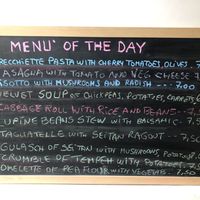 MENU' OF THE DAY
RECCHIETTE PASTA WITH CHERRY TOMATOES, OLIVES
ASAGNA WITH TOMATO AND VEG CHEESE
ISOTTO WITH MUSHROOMS AND RADISH --- 7,00
VELVET SOUP OF CHICKPEAS, POTATOES, CARROTS
CABBAGE ROLL WITH RICE AND BEANS
LUPINE BEANS STEW WITH BALSAMIC
TAGLIATELLE WITH SEITAN RAGOUT -- 7,50
GULASCH OF SEITAN WITH MUSHROOMS, POTATO
CRUMBLE OF TEMPEH WITH POTATOES
OMELETTE OF PEA FLOUR WITH VEGETABLES - 7,50